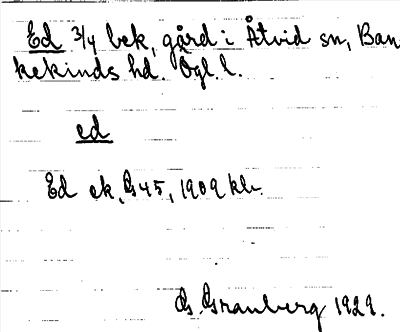 Ed 3/4 bek, gård i Åtvid sn, Ban
kekinds hd. Ögl. l.
ed
Ed ek, G45, 1909 kbr.
G. Granberg 1929.